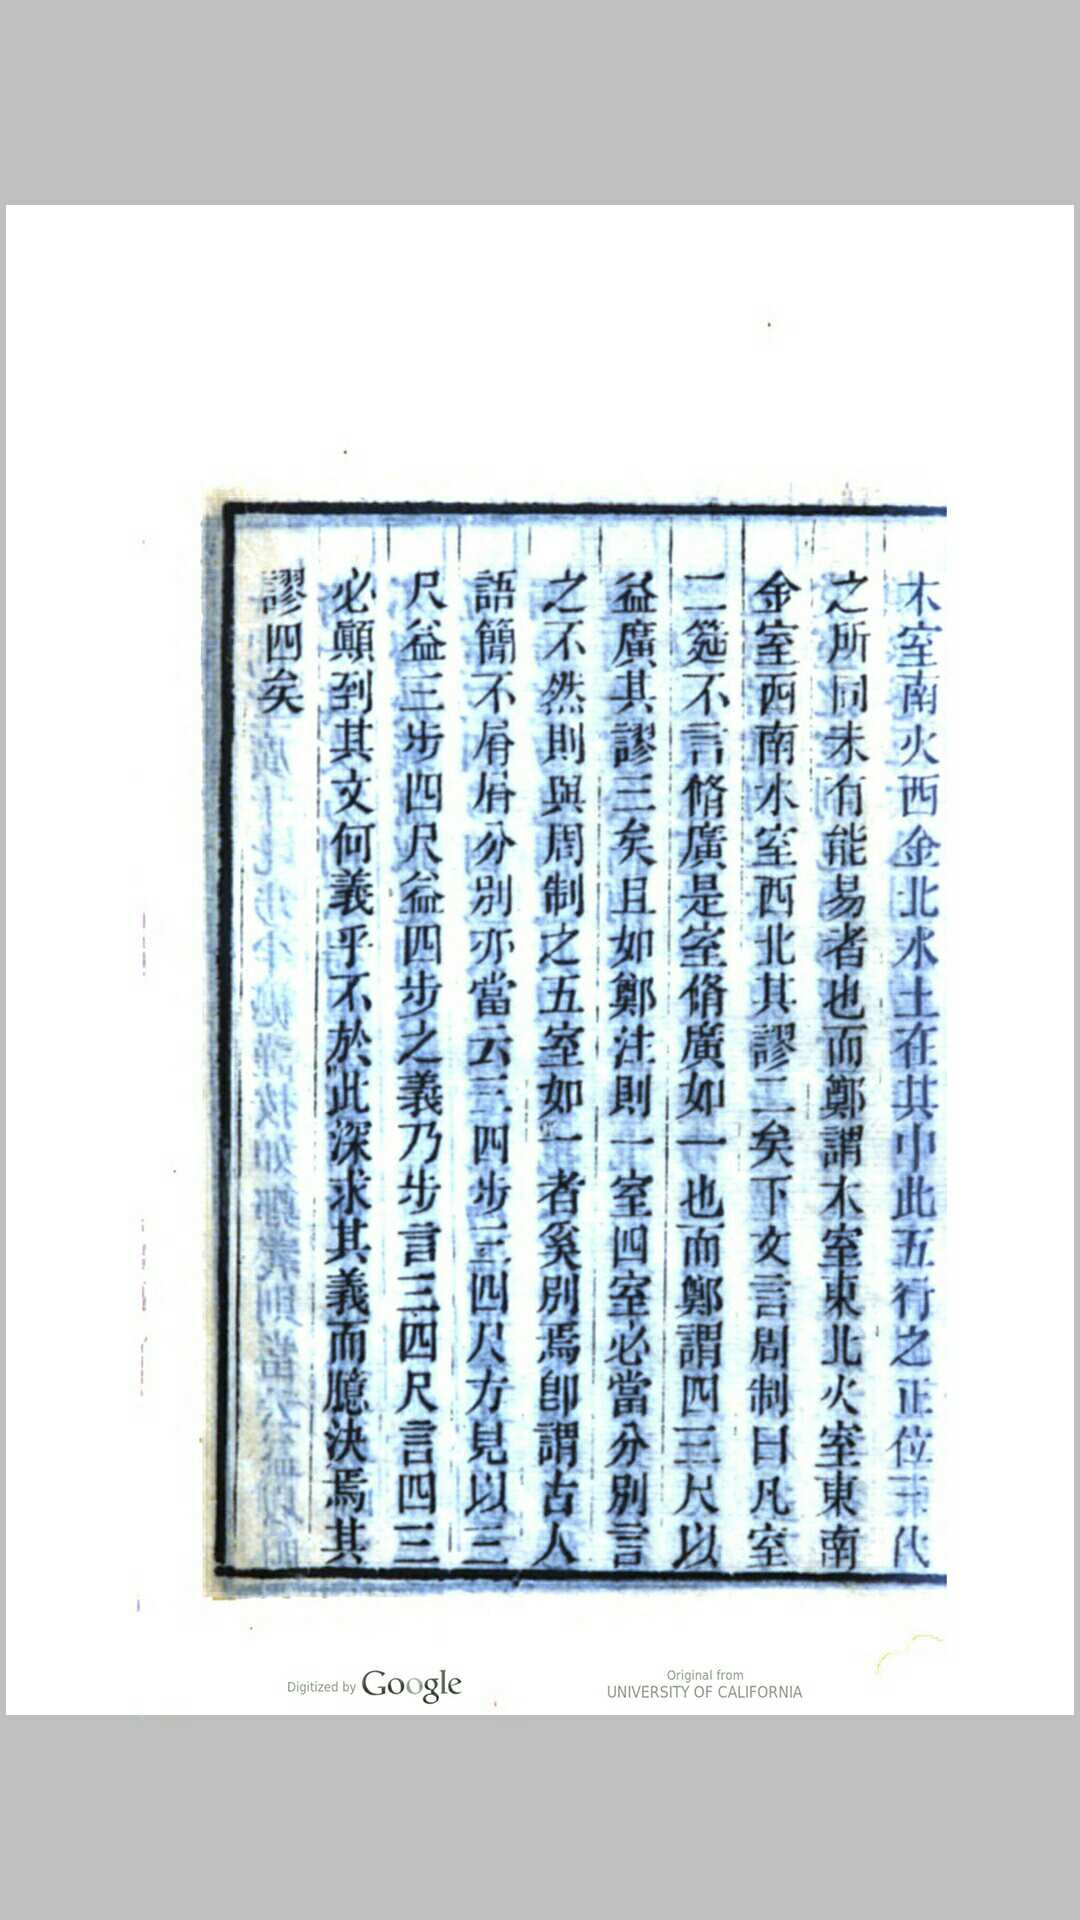 木室南火西金北水土在其中此五行之正位三代
之所同未有能易者也而鄭謂木室東北火室東南
金室西南水室西北其謬二矣下文言周制曰凡室
二筵不言脩廣是室脩廣如一也而鄭謂四三尺以
益廣其謬三矣且如鄭注則一室四室必當分別言
之不然則與周制之五室如一者奚別焉卽謂古人
語簡不屑屑分別亦當云三四步三四尺方見以三
尺益三步四尺益四步之義乃步言三四尺言四三
必顚到其文何義乎不於此深求其義而臆決焉其
謬四矣
Digitized by Google
Original from
UNIVERSITY OF CALIFORNIA